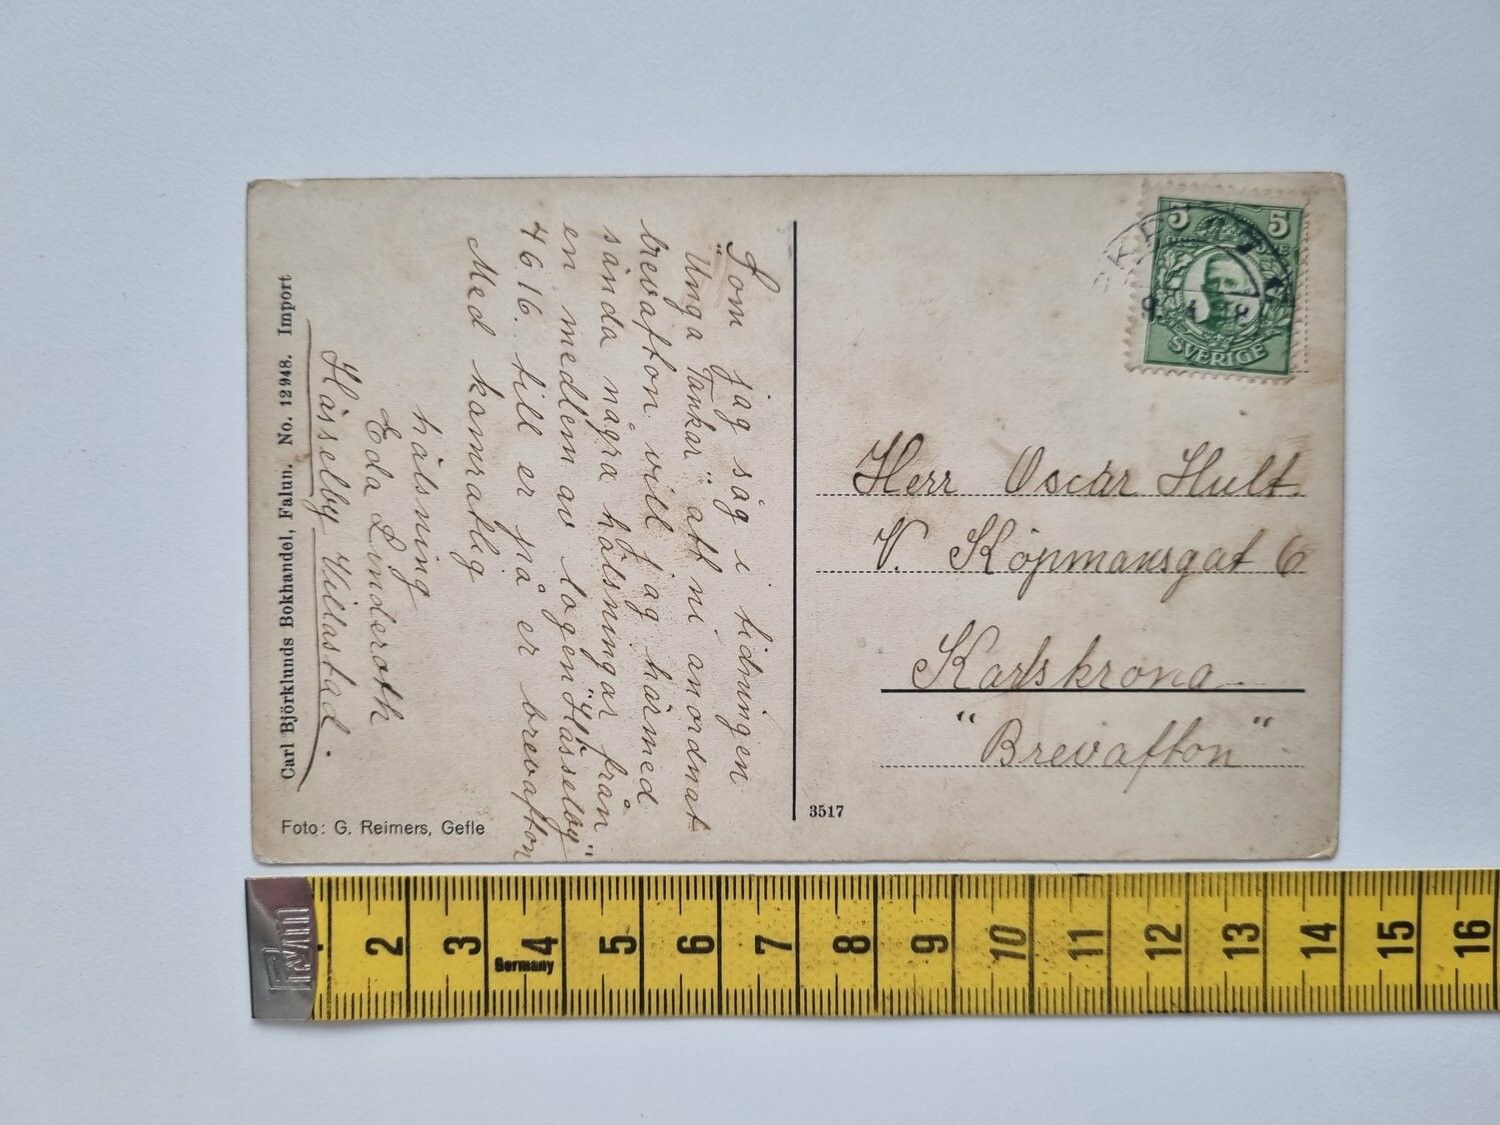 Som jag såg i tidningen
"Unga Tankar" att ni anordnat
brevafton vill jag härmed
sända några hälsningar från
en medlem av logen "Hässelby"
4616. till er på er brevafton
Med kamratlig
hälsning
Eda Linderoth
Hässelby Villastad.
Carl Björklunds Bokhandel, Falun. No. 12948. Import
Foto: G. Reimers, Gefle
3517
5 5
SVERIGE
Herr Oscar Hult.
V. Köpmansgat 6
Karlskrona.
"Brevafton"
2 3 4 5 6 7 8 9 10 11 12 13 14 15 16
Germany